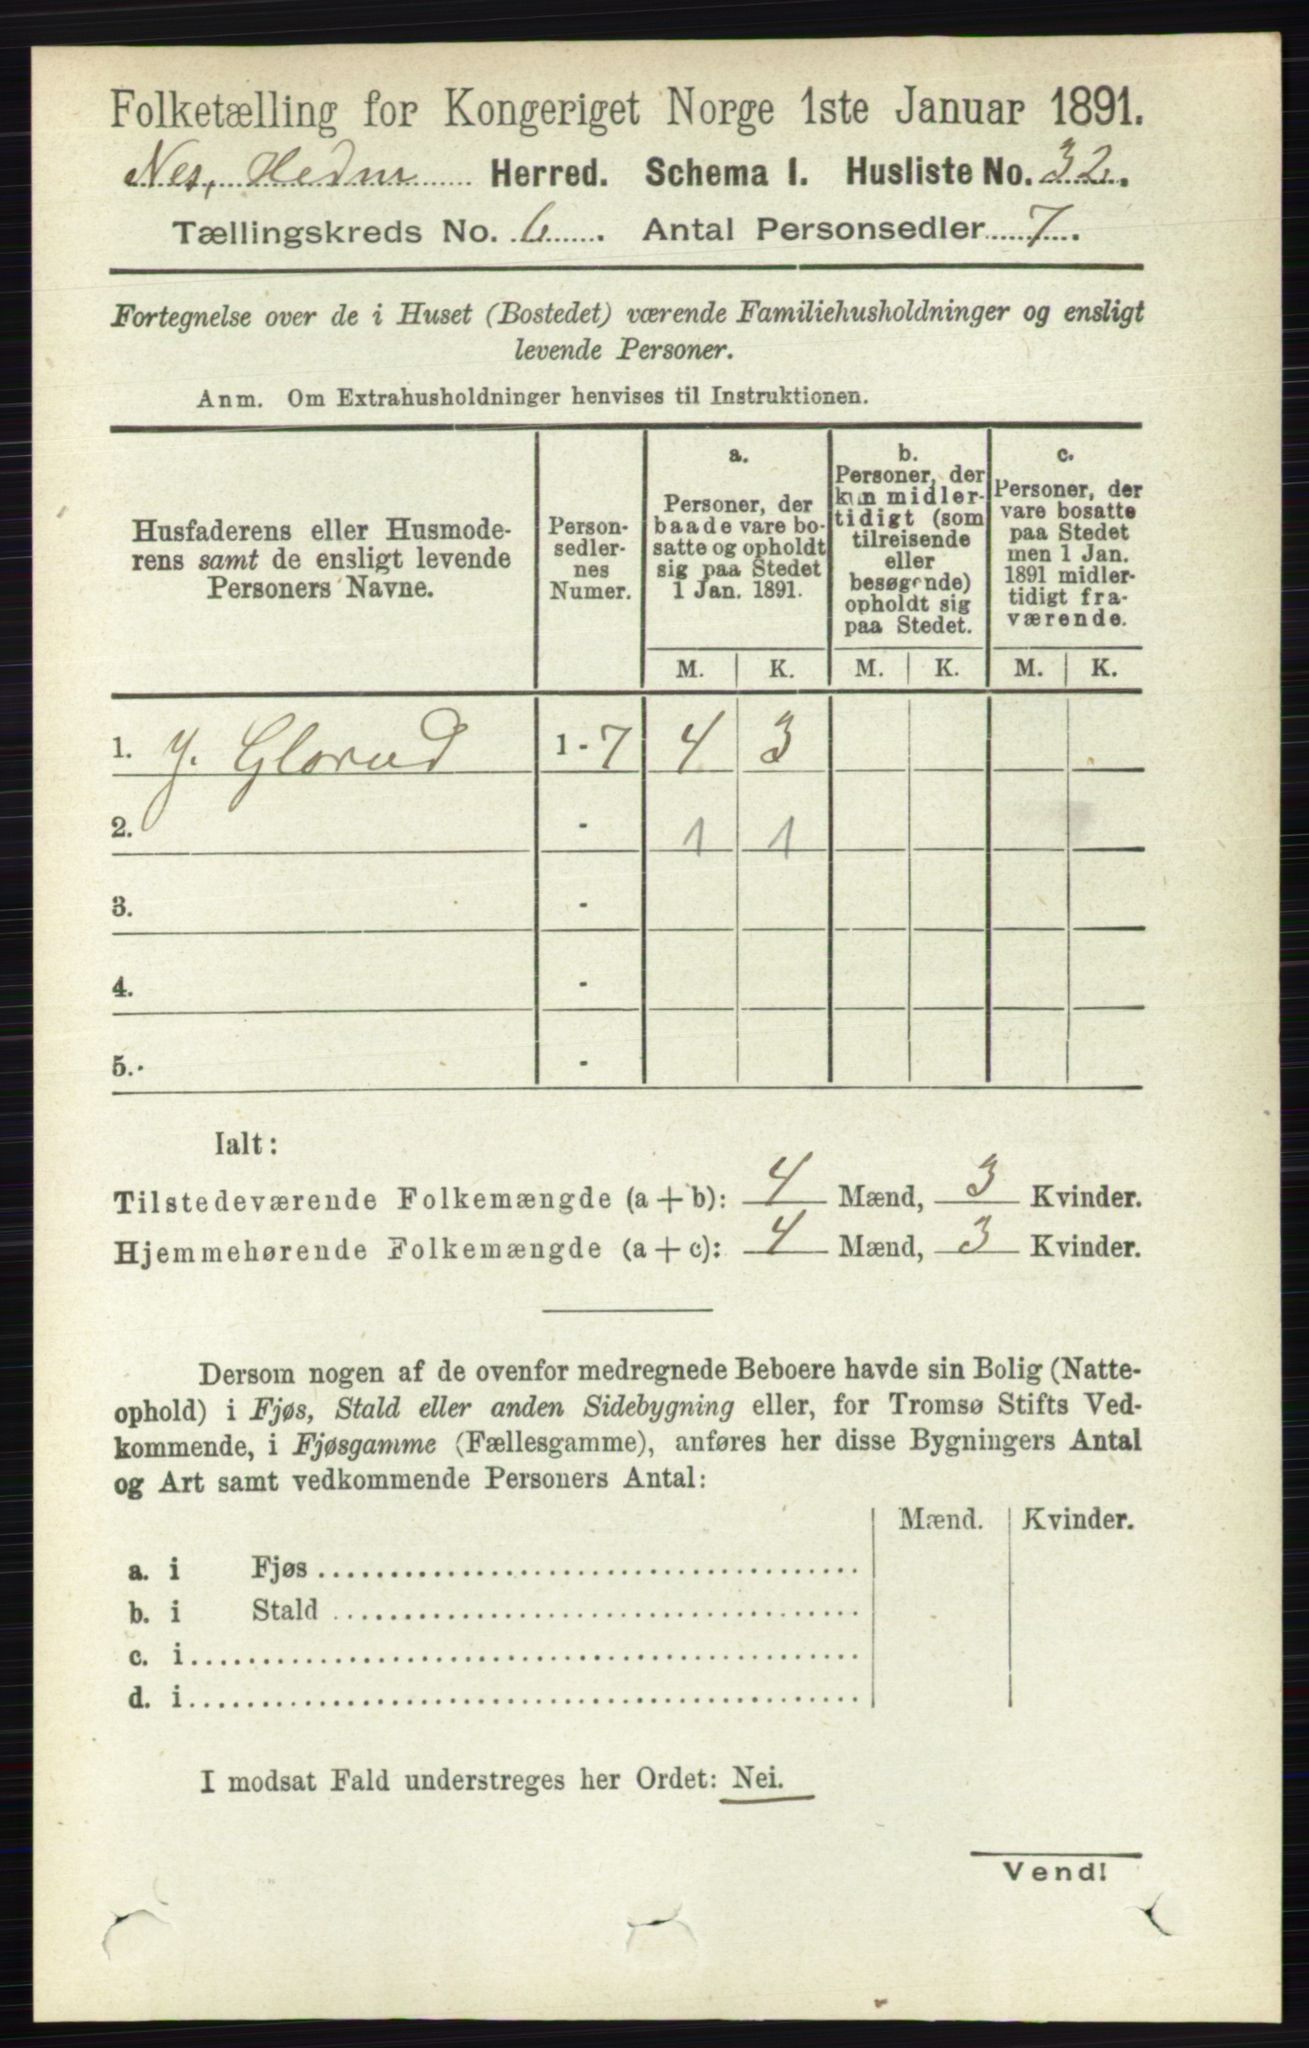 Folketælling for Kongeriget Norge 1ste Januar 1891.
Nes, Hedm Herred. Schema I. Husliste No. 32.
Tællingskreds No. 6. Antal Personsedler 7.
Fortegnelse over de i Huset (Bostedet) værende Familiehusholdninger og ensligt
levende Personer.
Anm. Om Extrahusholdninger henvises til Instruktionen.
Husfaderens eller Husmode-
rens samt de ensligt levende
Personers Navne.
Person-
sedler-
nes
Numer.
a.
Personer, der
baade vare bo-
satte og opholdt
sig paa Stedet
1 Jan. 1891.
b.
Personer, der
kun midler-
tidigt (som
tilreisende
eller
besøgende)
opholdt sig
paa Stedet.
c.
Personer, der
vare bosatte
paa Stedet
men 1 Jan.
1891 midler-
tidigt fra-
værende.
M. K. M. K. M. K.
1. J. Glorud 1-7 4 3
2. - 1 1
3. -
4. -
5. -
Ialt:
Tilstedeværende Folkemængde (a + b): 4 Mænd, 3 Kvinder.
Hjemmehørende Folkemængde (a + c): 4 Mænd, 3 Kvinder.
Dersom nogen af de ovenfor medregnede Beboere havde sin Bolig (Natte-
ophold) i Fjøs, Stald eller anden Sidebygning eller, for Tromsø Stifts Ved-
kommende, i Fjøsgamme (Fællesgamme), anføres her disse Bygningers Antal
og Art samt vedkommende Personers Antal:
Mænd. Kvinder.
a. i Fjøs
b. i Stald
c. i
d. i
I modsat Fald understreges her Ordet: Nei.
Vend!